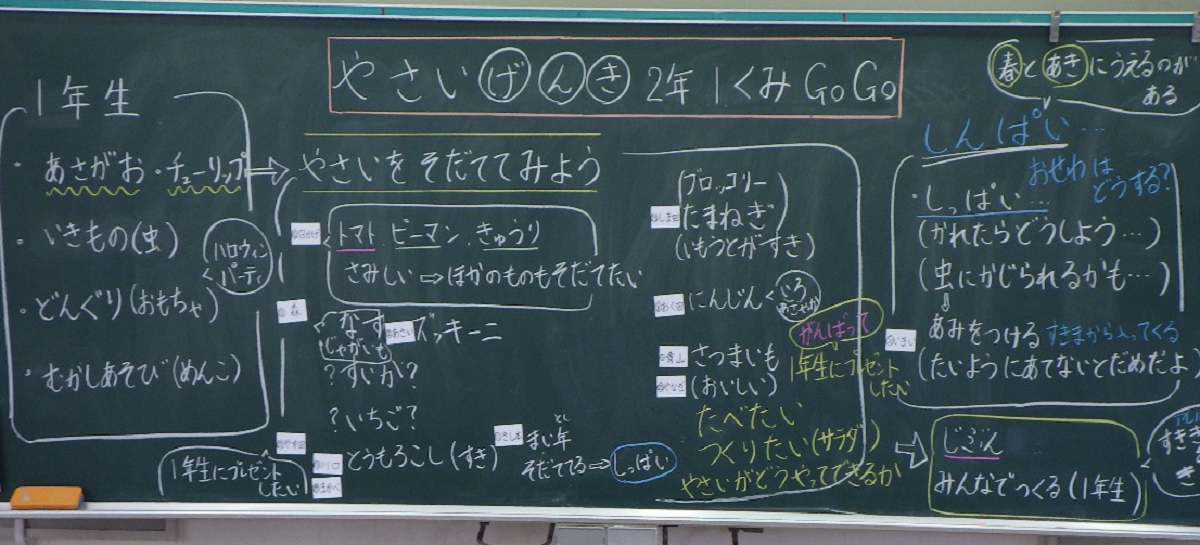 やさいげんき 2年1くみ GoGo
1年生
・あさがお・チューリップ
・いきもの(虫)
ハロウィン
パーティ
・どんぐり(おもちゃ)
・むかしあそび(めんこ)
1年生にプレゼント
したい
⇒やさいをそだててみよう
トマト ピーマン きゅうり
さみしい⇒ほかのものもそだてたい
森
なす
じゃがいも
あさい
ズッキーニ
?すいか?
?いちご?
やす田
とうもろこし(すき)
まい年
とし
そだててる⇒しっぱい
(ブロッコリー
たまねぎ)
(いもうとがすき)
にんじん
いろ
がんばって
1年生にプレゼント
したい
青山
さつまいも
やなぎ
(おいしい)
たべたい
つくりたい(サラダ)
やさいがどうやってできるか
春とあきにうえるのが
ある
しんぱい…
おせわは、
どうする?
・しっぱい…
(かれたらどうしよう…)
(虫にかじられるかも…)
⇓
あみをつける すきまから入ってくる
(たいようにあてないとだめだよ
⇒
じぶん
みんなでつくる(1年生)